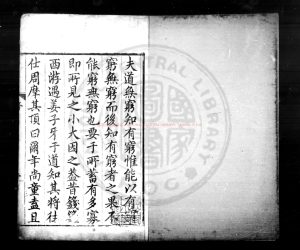 夫道無窮知有窮惟能以有
窮無窮而後知有窮者之果不
能窮無窮也要于所蓄有多寡
即所見之小大因之荃昔錢
西將遇姜子牙于道知其將往
仕周摩其頂曰爾年尚童盍且